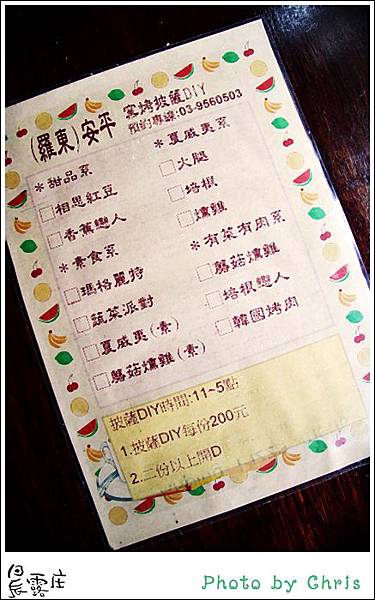 (羅東)安平 窯烤披薩DIY
預約專線:03-9560503
*甜品系
□相思紅豆
□香蕉戀人
*素食系
□瑪格麗特
□蔬菜派對
□夏威夷(素)
□磨菇燻雞(素)
*夏威夷系
□火腿
□培根
□燻雞
*有菜有肉系
□磨菇燻雞
□培根戀人
□韓國烤肉
披薩DIY時間:11~5點
1.披薩DIY每份200元
2.二份以上開D
晨露庄
Photo by Chris